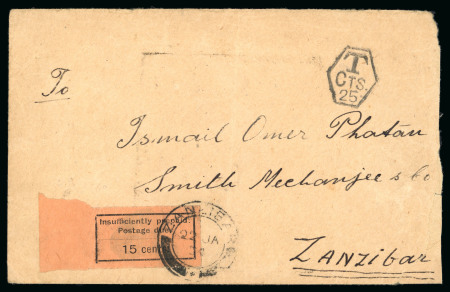 T
CTS.
25.
To
Ismail Omer Phatan
Smith Mechanjee & Co
Insufficiently prepaid.
Postage due
15 cents
ZANZIBAR
22 JA
Zanzibar